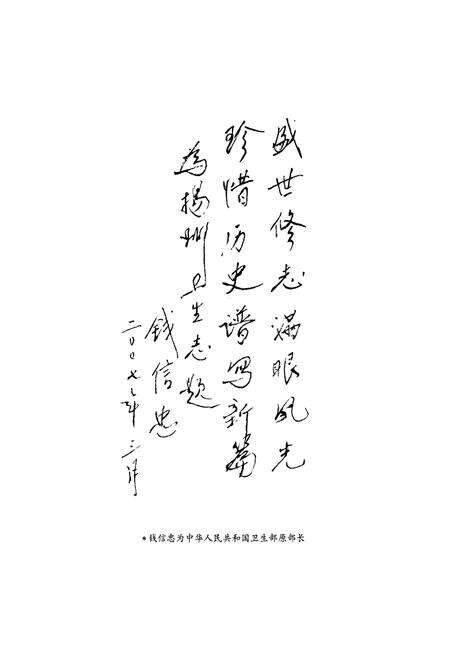 盛世修志满眼风光
珍惜历史谱写新篇
为扬州卫生志题
钱信忠
二〇〇七年三月
*钱信忠为中华人民共和国卫生部原部长